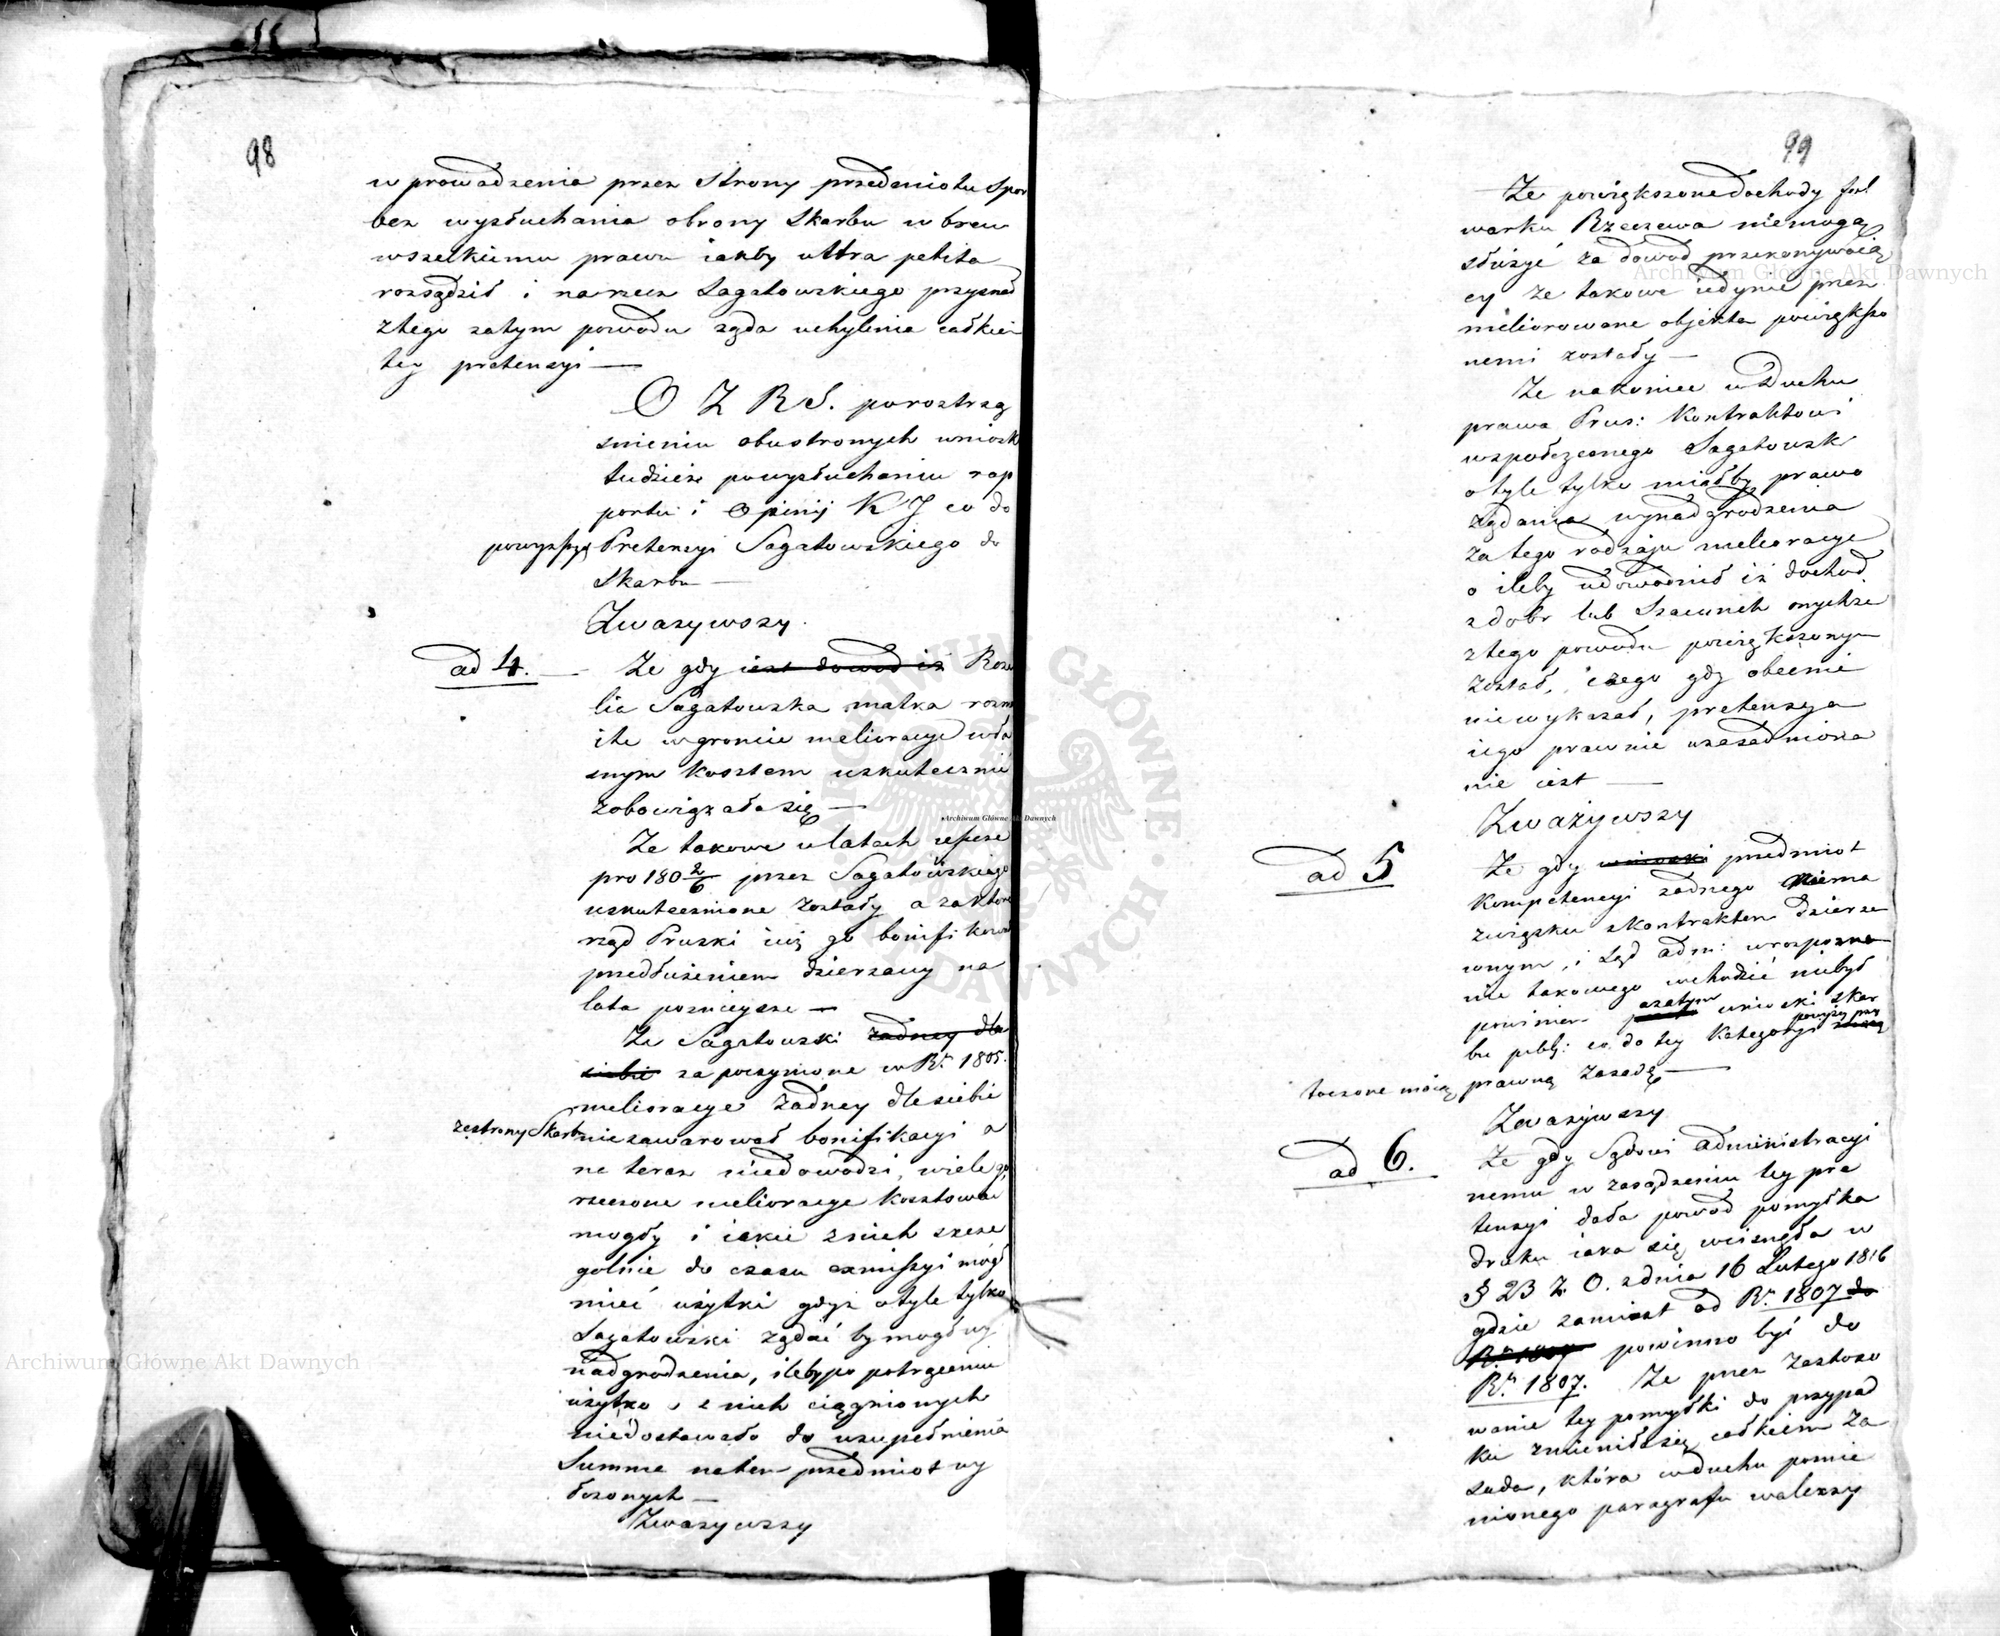 98
wprowadzenia przez Strony przedmiotu Spor
bez wysłuchania obrony Skarbu wbrew
wszelkiemu prawu iakby ultra petita
rozsądził i narzecz Sagatowskiego przyznał
ztego zatym powodu żąda uchylenia całkiem
tey pretensyi —
O Z R S. porostrzą
śnieniu obustronych wniosk
tudzież powysłuchaniu rap
portu i Opinij K J co do
powyższey Pretensyi Sagatowskiego do
Skarbu —
Zważywszy.
ad 4. — Że gdy iest dowod iż Roza
lia Sagatowska matka rozm
ite wgroncie melioracye wła
snym kosztem uskutecznić
zobowiązała się —
Że takowe wlatach
pro 180 2/6 przez Sagatowskiego
uskutecznione zostały a zaktore
rząd Pruski iuż go bonifikował
przedłużeniem dzierzawy na
lata poznieysze —
Że Sagatowski żadney dla
siebie za poczynione w Rku 1805.
melioracye żadney dlasiebie
zestrony Skarbu niezawarował bonifikacyi a
ne teraz niedowodzi, wiele go
rzeczone melioracye kosztowa
mogły i iakie znich szcze
golnie do czasu exmissyi mógł
mieć użytki gdyż otyle tylko
Sagatowski żądać bymogł wy
nadgrodzenia, ileby po potrąceniu
użytko z nich ciągnionych
niedostawało do uzupełnienia
Summe naten przedmiot wy
łożonych —
Zważywszy
99
Że powiększone dochody fol
warku Rzeczewa niemogą
służyć za dowod przekonywaią
cy że takowe iedynie przez
meliorowane objekta powiększo
nemi zostały —
Że nakoniec w duchu
prawa Prus: Kontraktowi
współczesnego Sagatowsk
otyle tylko miałby prawo
żądania wynadgrodzenia
za tego rodzaju melioracye
o ileby udowodnił iż dochod
z dobr lub Szacunek onychże
ztego powodu powiększonym
został, czego gdy obecnie
niewykazał, pretensya
iego prawnie uzasadniona
nie iest —
Zważywszy
ad 5 Że gdy wnioski przedmiot
kompetencyi żadnego niema
związku zkontraktem dzierza
wnym, i Sąd adm: wrospozna
nie takowego wchodzić niebył
powinien azatym wnioski Skar
bu publ: co do tey kategoryi powyżey przy
toczone maią prawną zasadę —
Zważywszy
ad 6. Że gdy Sądowi administracyi
nemu w zasądzeniu tey pre
tensyi dała powod pomyłka
druku iaka się wcisnęła w
§ 23 Z. O. zdnia 16 Lutego 1816
gdzie zamiast od Rku 1807 do
Rku 1807 powinno być do
Rku 1807. Że przez zastoso
wanie tey pomyłki do przypad
ku zmieniła się całkiem za
sada, która wduchu pomie
nionego paragrafu walczy